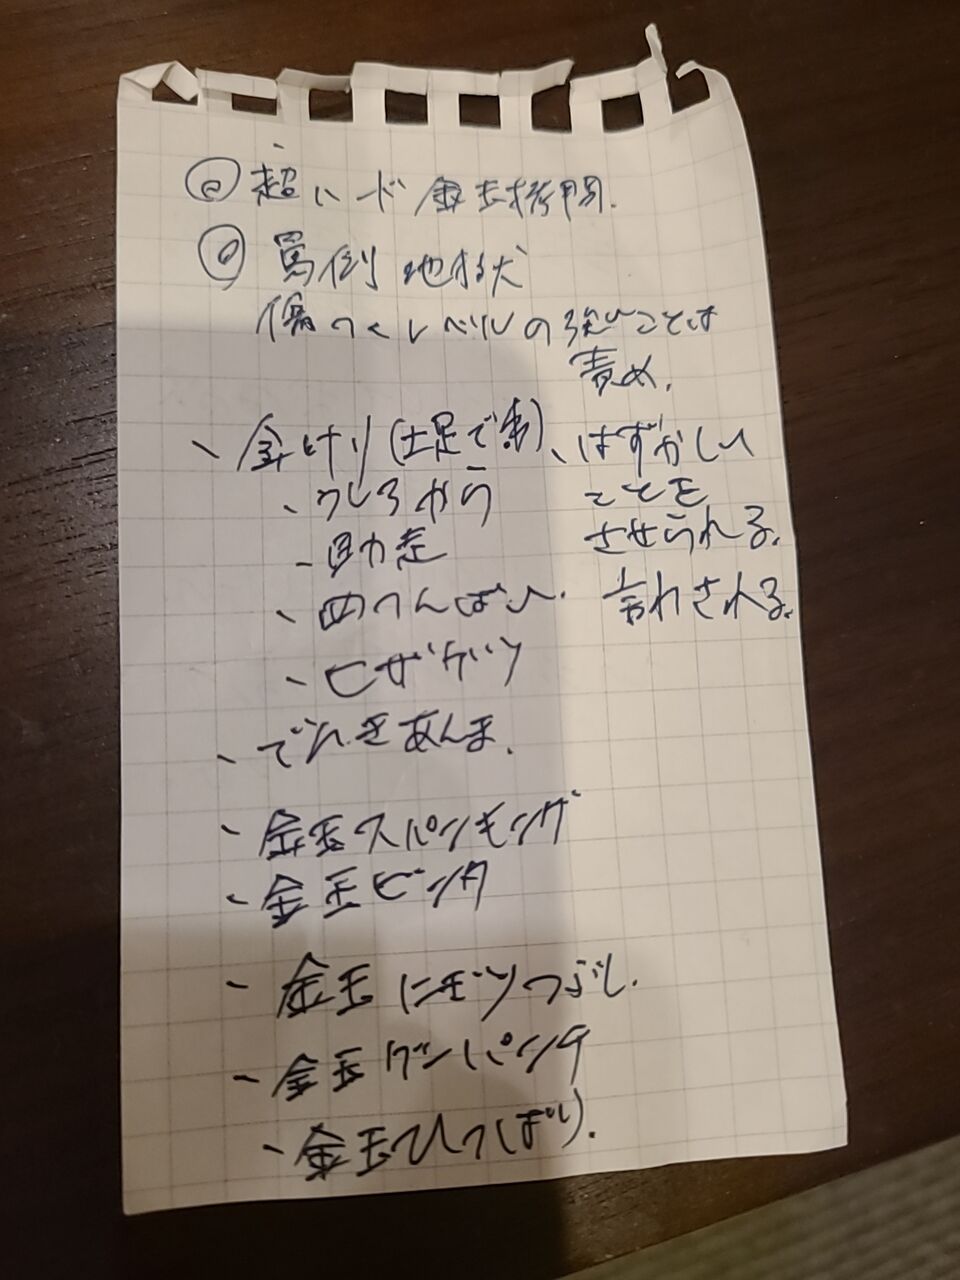 ◎超ハード金玉拷問.
◎罵倒地獄
傷つくレベルの強いことば
責め.
、金けり(土足で)
、うしろから
、助走
、四つんばい.
、ヒザゲリ
、でんきあんま.
、金玉スパンキング
、金玉ビンタ
、金玉にぎりつぶし.
、金玉グーパンチ
、金玉ひっぱり.
、はずかしい
ことを
させられる.
言わされる.